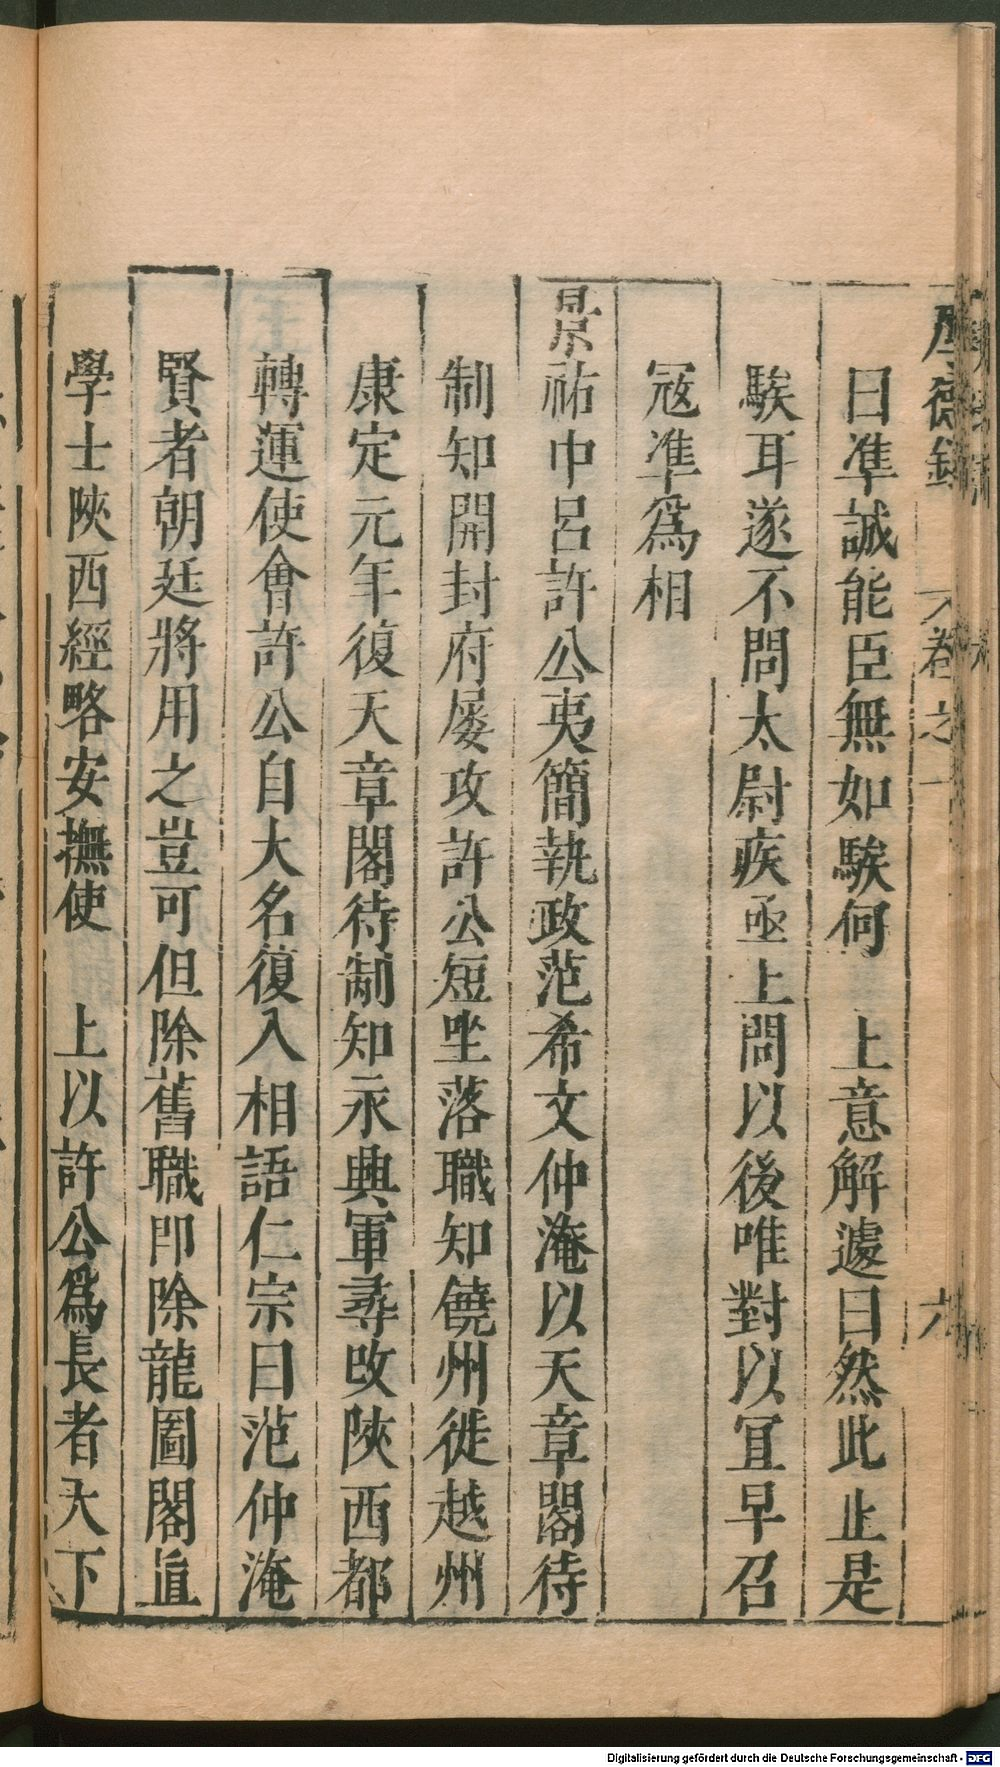 厚德錄 卷之一 六
曰準誠能臣無如騃何 上意解遽曰然此止是
騃耳遂不問太尉疾亟上問以後唯對以宜早召
寇準爲相
景祐中呂許公夷簡執政范希文仲淹以天章閣待
制知開封府屢攻許公短坐落職知饒州徙越州
康定元年復天章閣待制知永興軍尋改陜西都
轉運使會許公自大名復入相語仁宗曰范仲淹
賢者朝廷將用之豈可但除舊職即除龍圖閣直
學士陜西經略安撫使 上以許公爲長者天下
Digitalisierung gefördert durch die Deutsche Forschungsgemeinschaft - DFG